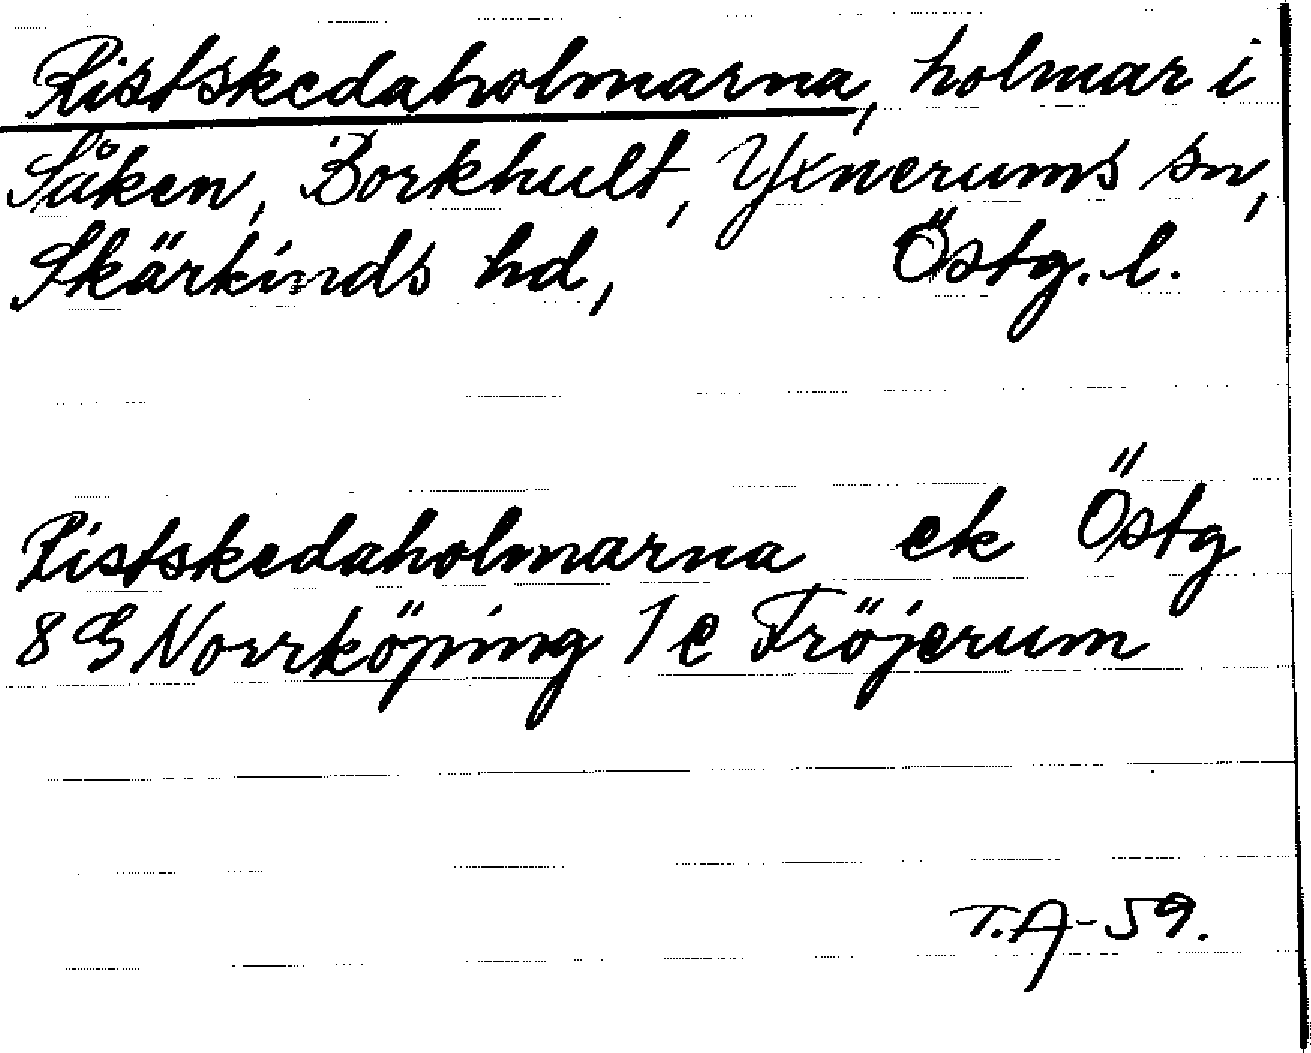 Ristskedaholmarna, holmar i
Såken, Borkhult, Yxnerums sn,
Skärkinds hd, Östg. l.
Ristskedaholmarna ek Östg
8G Norrköping 1 e Fröjerum
T.A-59.